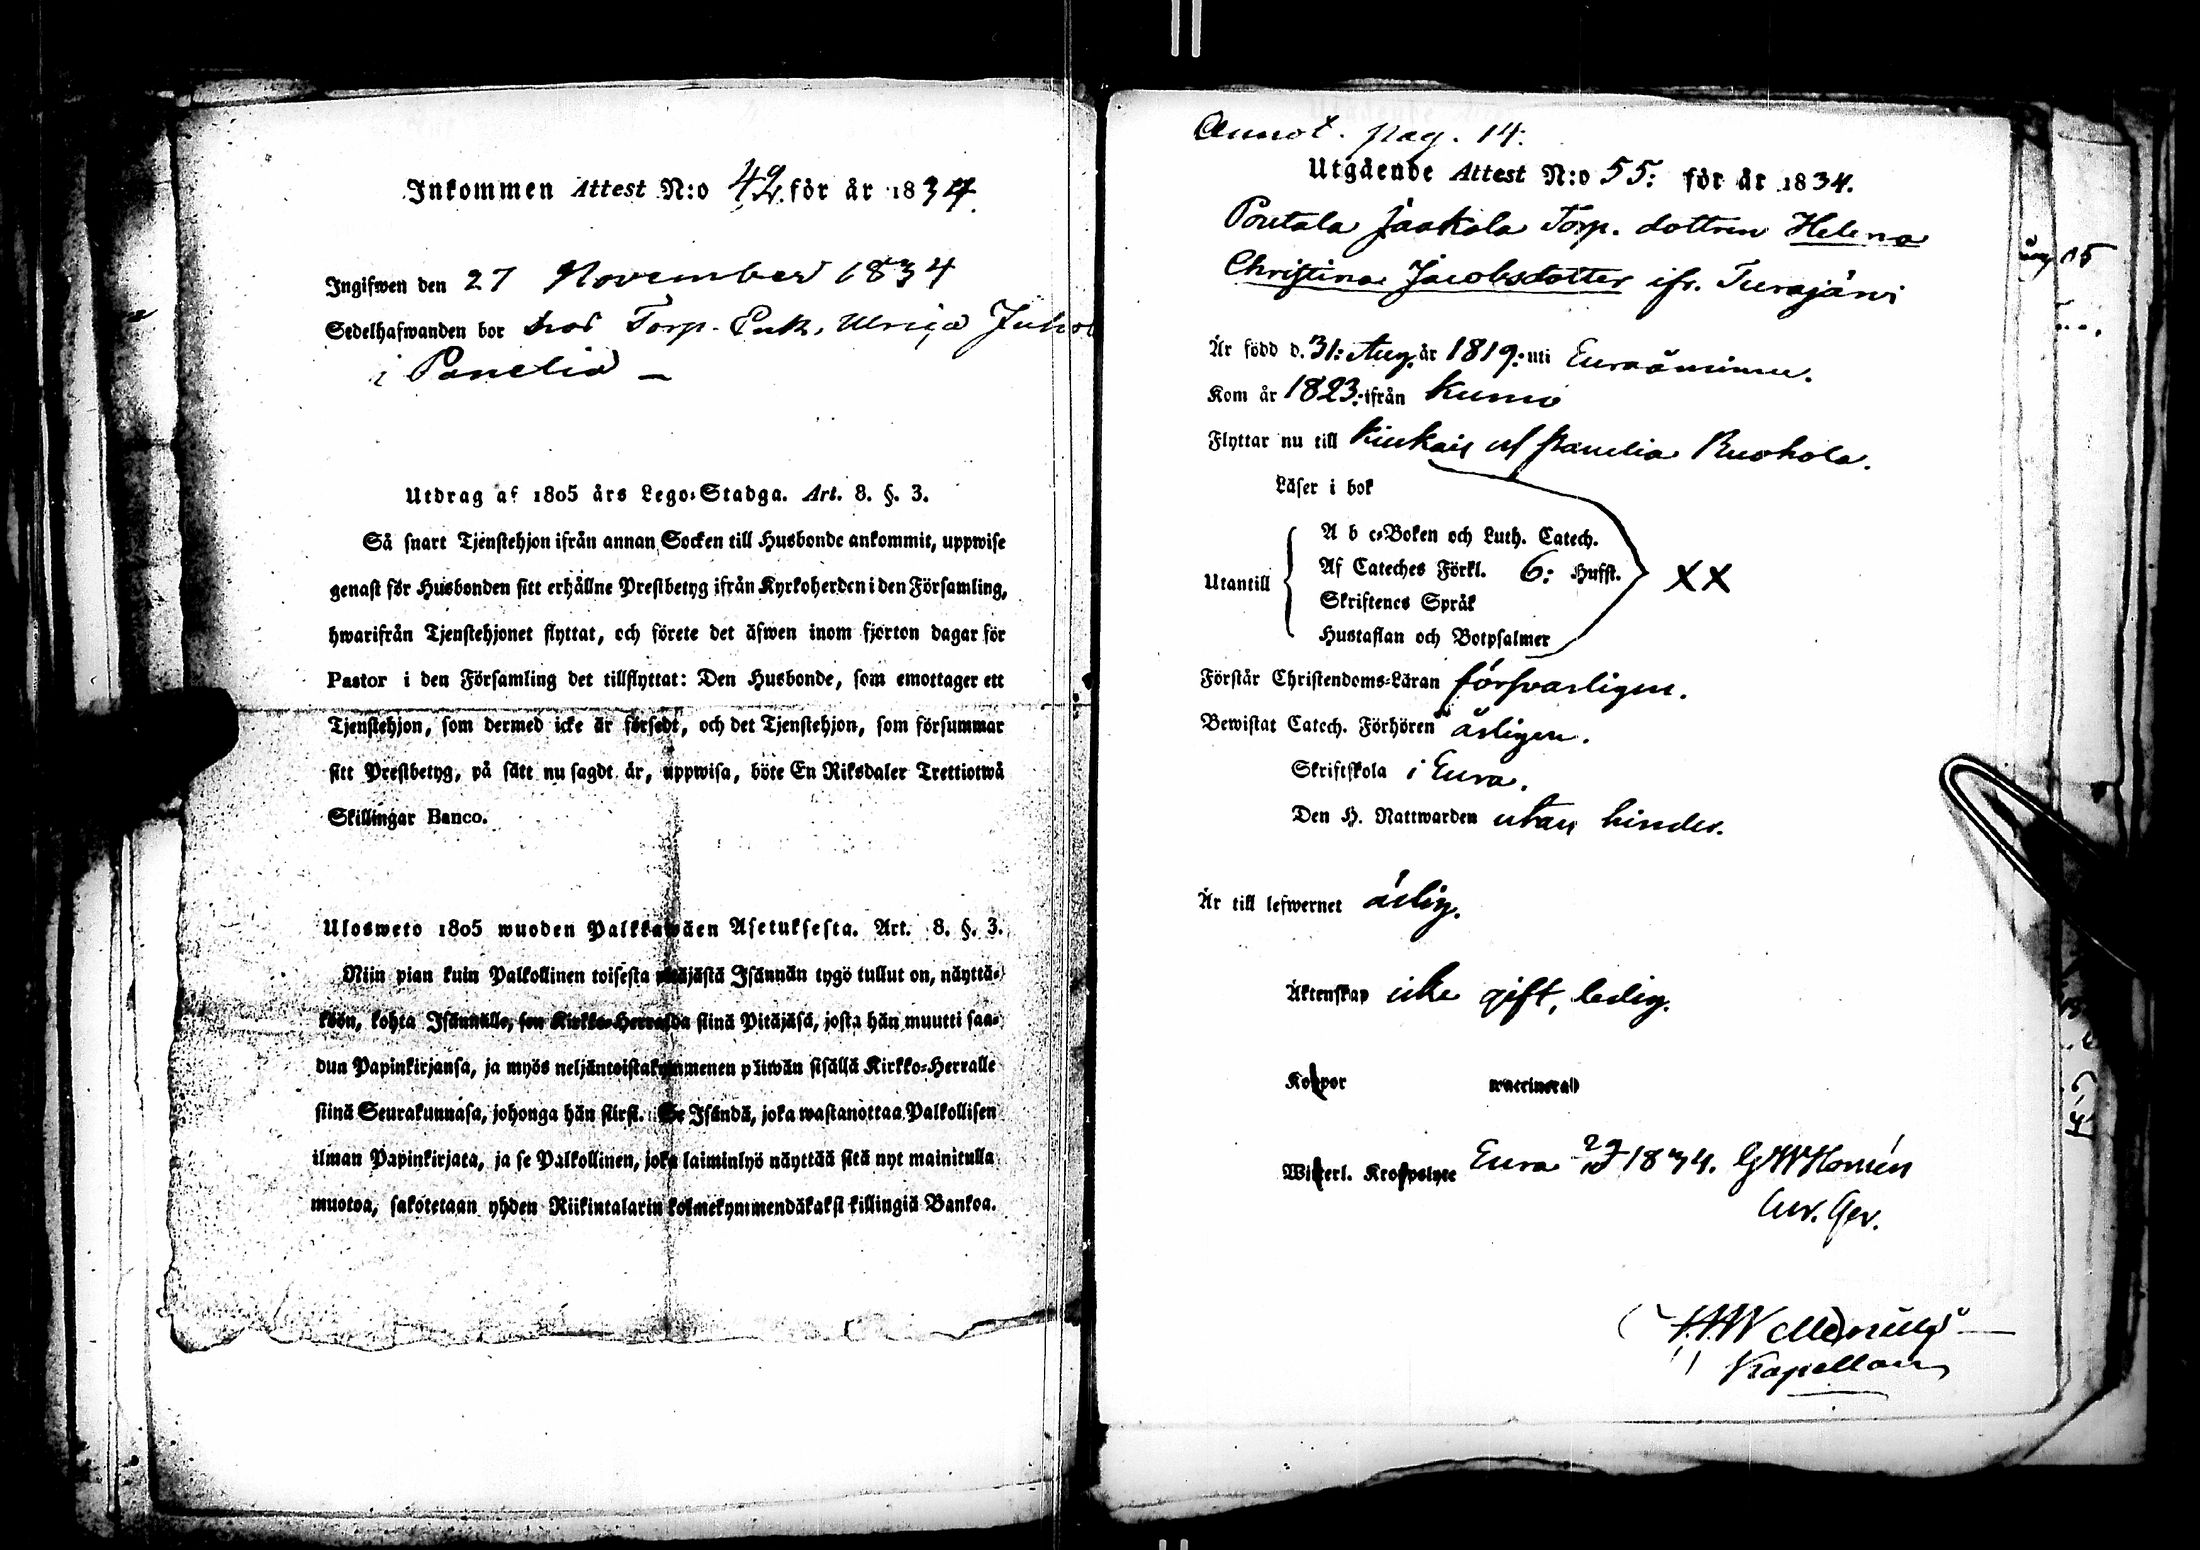 Inkommen Attest N:o 42 för år 1834.
Ingifwen den 27 November 1834
Sedelhafwanden bor hos Torp. Enk. Ulrica
i Panelia —
Utdrag af 1805 års Lego-Stadga. Art. 8. §. 3.
Så snart Tjenstehjon ifrån annan Socken till Husbonde ankommit, uppwise
genast för Husbonden sitt erhållne Prestbetyg ifrån Kyrkoherden i den Församling,
hwarifrån Tjenstehjonet flyttat, och förete det äfwen inom fjorton dagar för
Pastor i den Församling det tillflyttat: Den Husbonde, som emottager ett
Tjenstehjon, som dermed icke är försedt, och det Tjenstehjon, som försummar
sitt Prestbetyg, på sätt nu sagdt är, uppwisa, böte En Riksdaler Trettiotwå
Skillingar Banco.
Ulosweto 1805 wuoden Palkkawäen Asetuksesta. Art. 8. §. 3.
Niin pian kuin Palkollinen toisesta pitäjästä Isännän tygö tullut on, näyttä-
köön, kohta Isännälle, sen Kirkko-Herralda siinä Pitäjäsä, josta hän muutti saa-
dun Papinkirjansa, ja myös neljäntoistakymmenen päiwän sisällä Kirkko-Herralle
siinä Seurakunnasa, johonga hän siirsi. Se Isändä, joka wastanottaa Palkollisen
ilman Papinkirjata, ja se Palkollinen, joka laiminlyö näyttää sitä nyt mainitulla
muotoa, sakotetaan yhden Riikintalarin kolmekymmendäkaksi killingiä Bankoa.
Annot. pag. 14.
Utgående Attest N:o 55: för år 1834.
Pontala Jaakola Torp. dottren Helena
Christina Jacobsdotter ifr. Turajärvi
Är född d. 31: Aug. år 1819: uti Euraåminne.
Kom år 1823: ifrån Kumo
Flyttar nu till Kiukais af Panelia Ruohola.
Läser i bok
A b c-Boken och Luth. Catech.
Utantill Af Cateches Förkl. 6: Hufst. XX
Skriftenes Språk
Hustaflan och Botpsalmer
Förstår Christendoms-Läran försvarligen.
Bewistat Catech. Förhören årligen.
Skriftskola i Eura.
Den H. Nattwarden utan hinder.
Är till lefwernet ärlig.
Äktenskap icke gift, ledig.
Koppor vaccinerad
Wisterl. Eura 1834. G W Homén
Kapellan